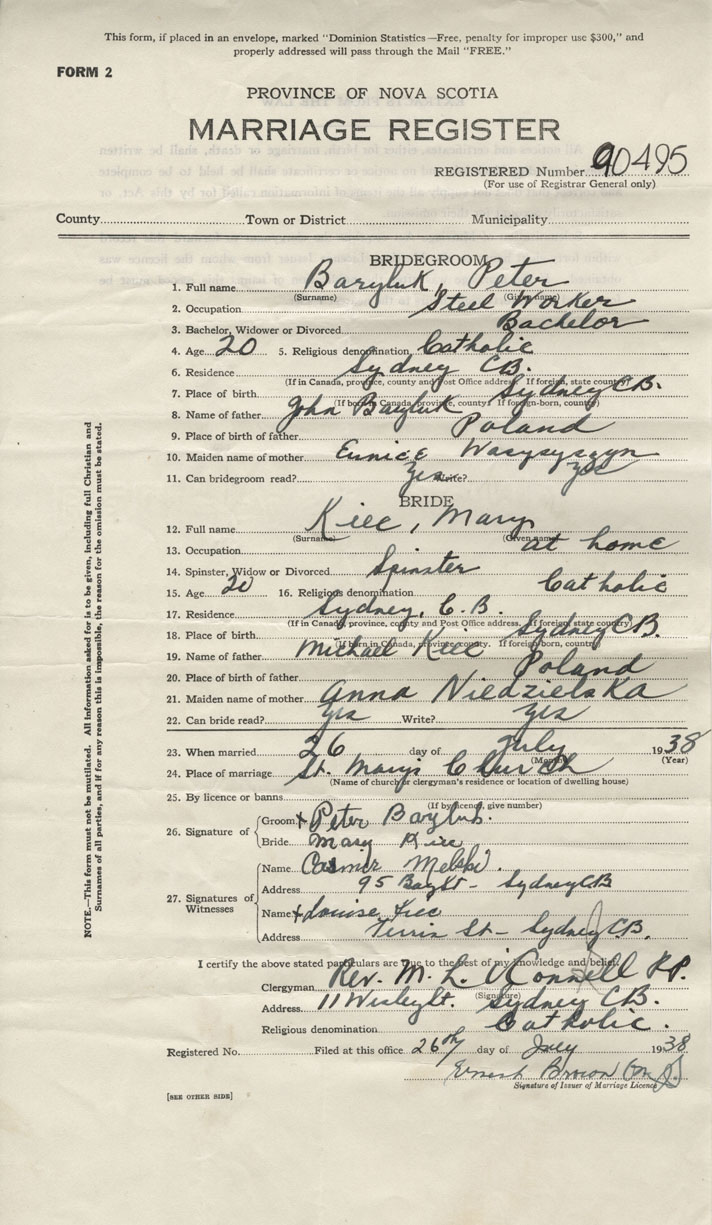 This form, if placed in an envelope, marked "Dominion Statistics—Free, penalty for improper use $300," and
properly addressed will pass through the Mail "FREE."
FORM 2
PROVINCE OF NOVA SCOTIA
MARRIAGE REGISTER
REGISTERED Number 90495
(For use of Registrar General only)
County Town or District Municipality
BRIDEGROOM
1. Full name Baryluk, Peter
(Surname) (Given name)
2. Occupation Steel Worker
3. Bachelor, Widower or Divorced Bachelor
4. Age 20 5. Religious denomination Catholic
6. Residence Sydney CB.
(If in Canada, province, county and Post Office address. If foreign, state country)
7. Place of birth Sydney CB.
(If born in Canada, province, county. If foreign-born, country)
8. Name of father John Baryluk
9. Place of birth of father Poland
10. Maiden name of mother Eunice
11. Can bridegroom read? Yes Write? Yes
BRIDE
12. Full name Kiec, Mary
(Surname) (Given name)
13. Occupation at home
14. Spinster, Widow or Divorced Spinster
15. Age 20 16. Religious denomination Catholic
17. Residence Sydney, C.B.
(If in Canada, province, county and Post Office address. If foreign, state country)
18. Place of birth Sydney CB.
(If born in Canada, province, county. If foreign-born, country)
19. Name of father Michael Kiec
20. Place of birth of father Poland
21. Maiden name of mother Anna Niedzielska
22. Can bride read? Yes Write? Yes
23. When married 26 day of July 1938
(Month) (Year)
24. Place of marriage St. Marys Church
(Name of church or clergyman's residence or location of dwelling house)
25. By licence or banns
(If by licence, give number)
26. Signature of Groom x Peter Baryluk.
Bride Mary Kiec
27. Signatures of Witnesses
Name Casmir Melski.
Address 95 Bay St - Sydney CB
Name x Louise Kiec
Address St - Sydney CB.
I certify the above stated particulars are true to the best of my knowledge and belief.
Clergyman Rev. M. L. O'Connell P.P.
(Signature)
Address 11 Sydney CB.
Religious denomination Catholic.
Registered No. Filed at this office 26th day of July 1938
Ernest Brown
Signature of Issuer of Marriage Licence
[SEE OTHER SIDE]
NOTE.—This form must not be mutilated. All information asked for is to be given, including full Christian and
Surnames of all parties, and if for any reason this is impossible, the reason for the omission must be stated.